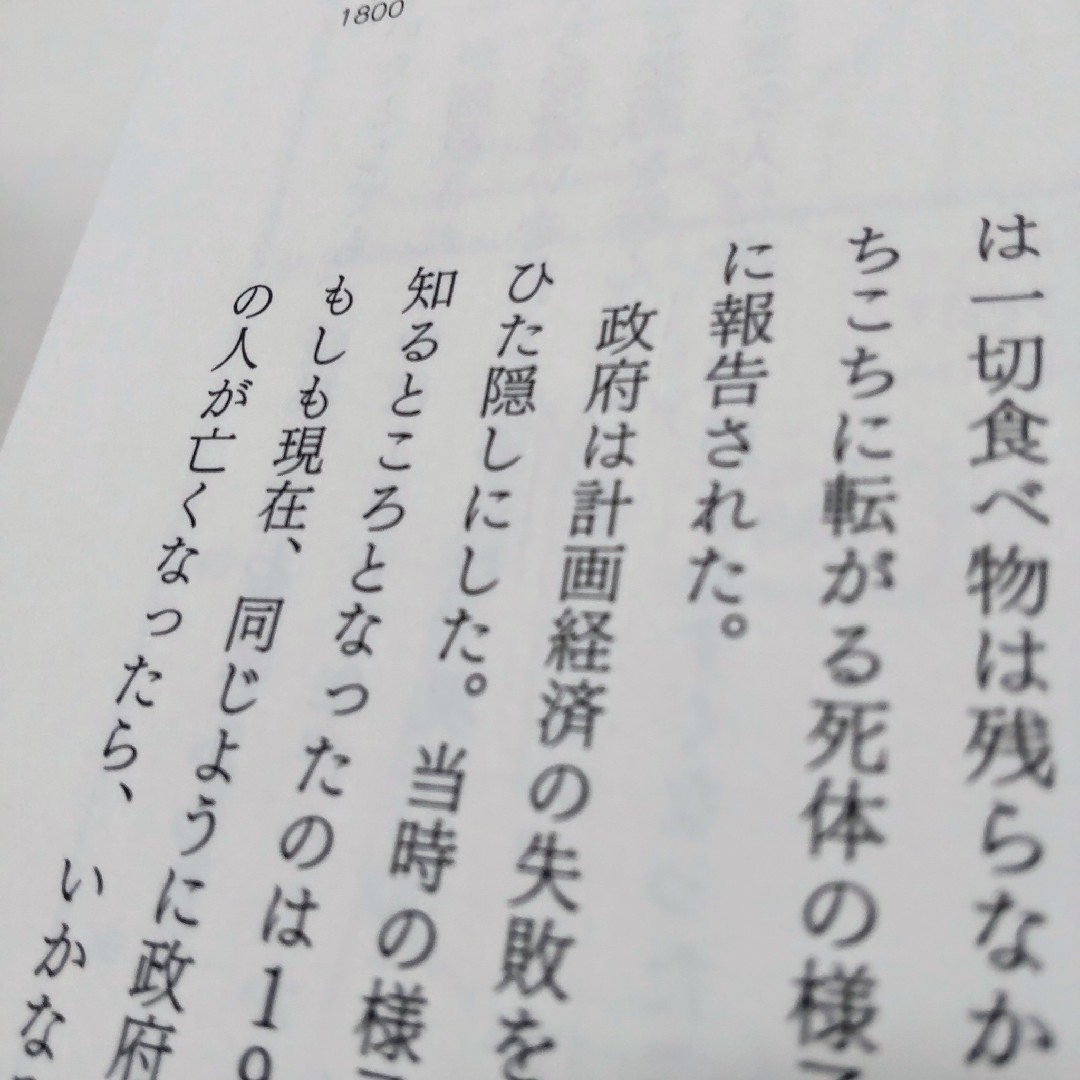 1800
は一切食べ物は残らなか
ちこちに転がる死体の様子
に報告された。
政府は計画経済の失敗を
ひた隠しにした。当時の様子
知るところとなったのは19
もしも現在、同じように政府
の人が亡くなったら、いかな